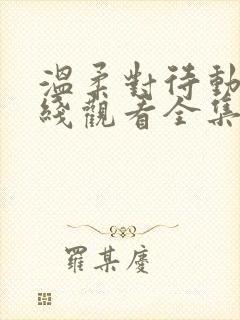 溫柔對待動
綫觀看全集
羅某慶